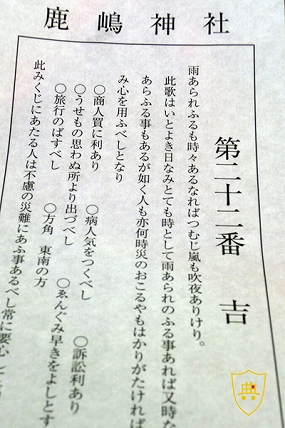 鹿嶋神社
第二十二番 吉
雨あられふるも時々あるなればつむじ嵐も吹夜ありけり。
此歌はいとよき日なみとても時として雨あられのふる事あれば又時な
あらふる事もあるが如く人も亦何時災のおこるやもはかりがたければ
み心を用ふべしとなり
○商人買に利あり ○病人気をつくべし ○訴訟利あり
○うせもの思わぬ所より出づべし ○ゑんぐみ早きをよしとす
○旅行のばすべし ○方角 東南の方
此みくじにあたる人は不慮の災難にあふ事あるべし常に要心し